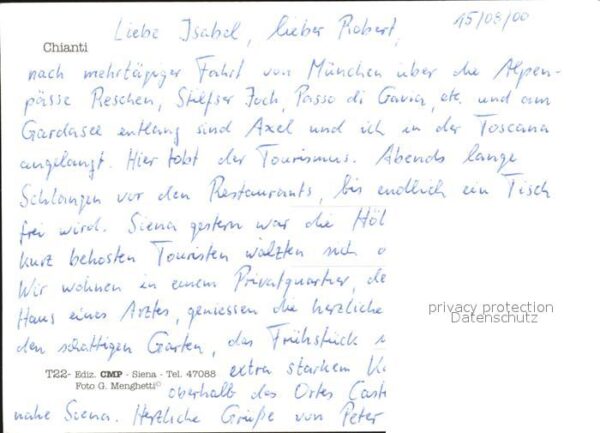 15/08/00
Liebe Isabel, lieber Robert,
Chianti
nach mehrtägiger Fahrt von München über die Alpen-
pässe Reschen, Stilfser Joch, Passo di Gavia, etc. und am
Gardasee entlang sind Axel und ich in der Toscana
angelangt. Hier tobt der Tourismus. Abends lange
Schlangen vor den Restaurants, bis endlich ein Tisch
frei wird. Siena gestern war die Höl
kurz behosten Touristen wälzten sich
Wir wohnen in einem Privatquartier, de
Haus eines Arztes, geniessen die herzliche
den schattigen Garten, das Frühstück
privacy protection
Datenschutz
T22- Ediz. CMP - Siena - Tel. 47088
Foto G. Menghetti©
extra starkem
oberhalb des Ortes Cast
nahe Siena. Herzliche Grüße von Peter